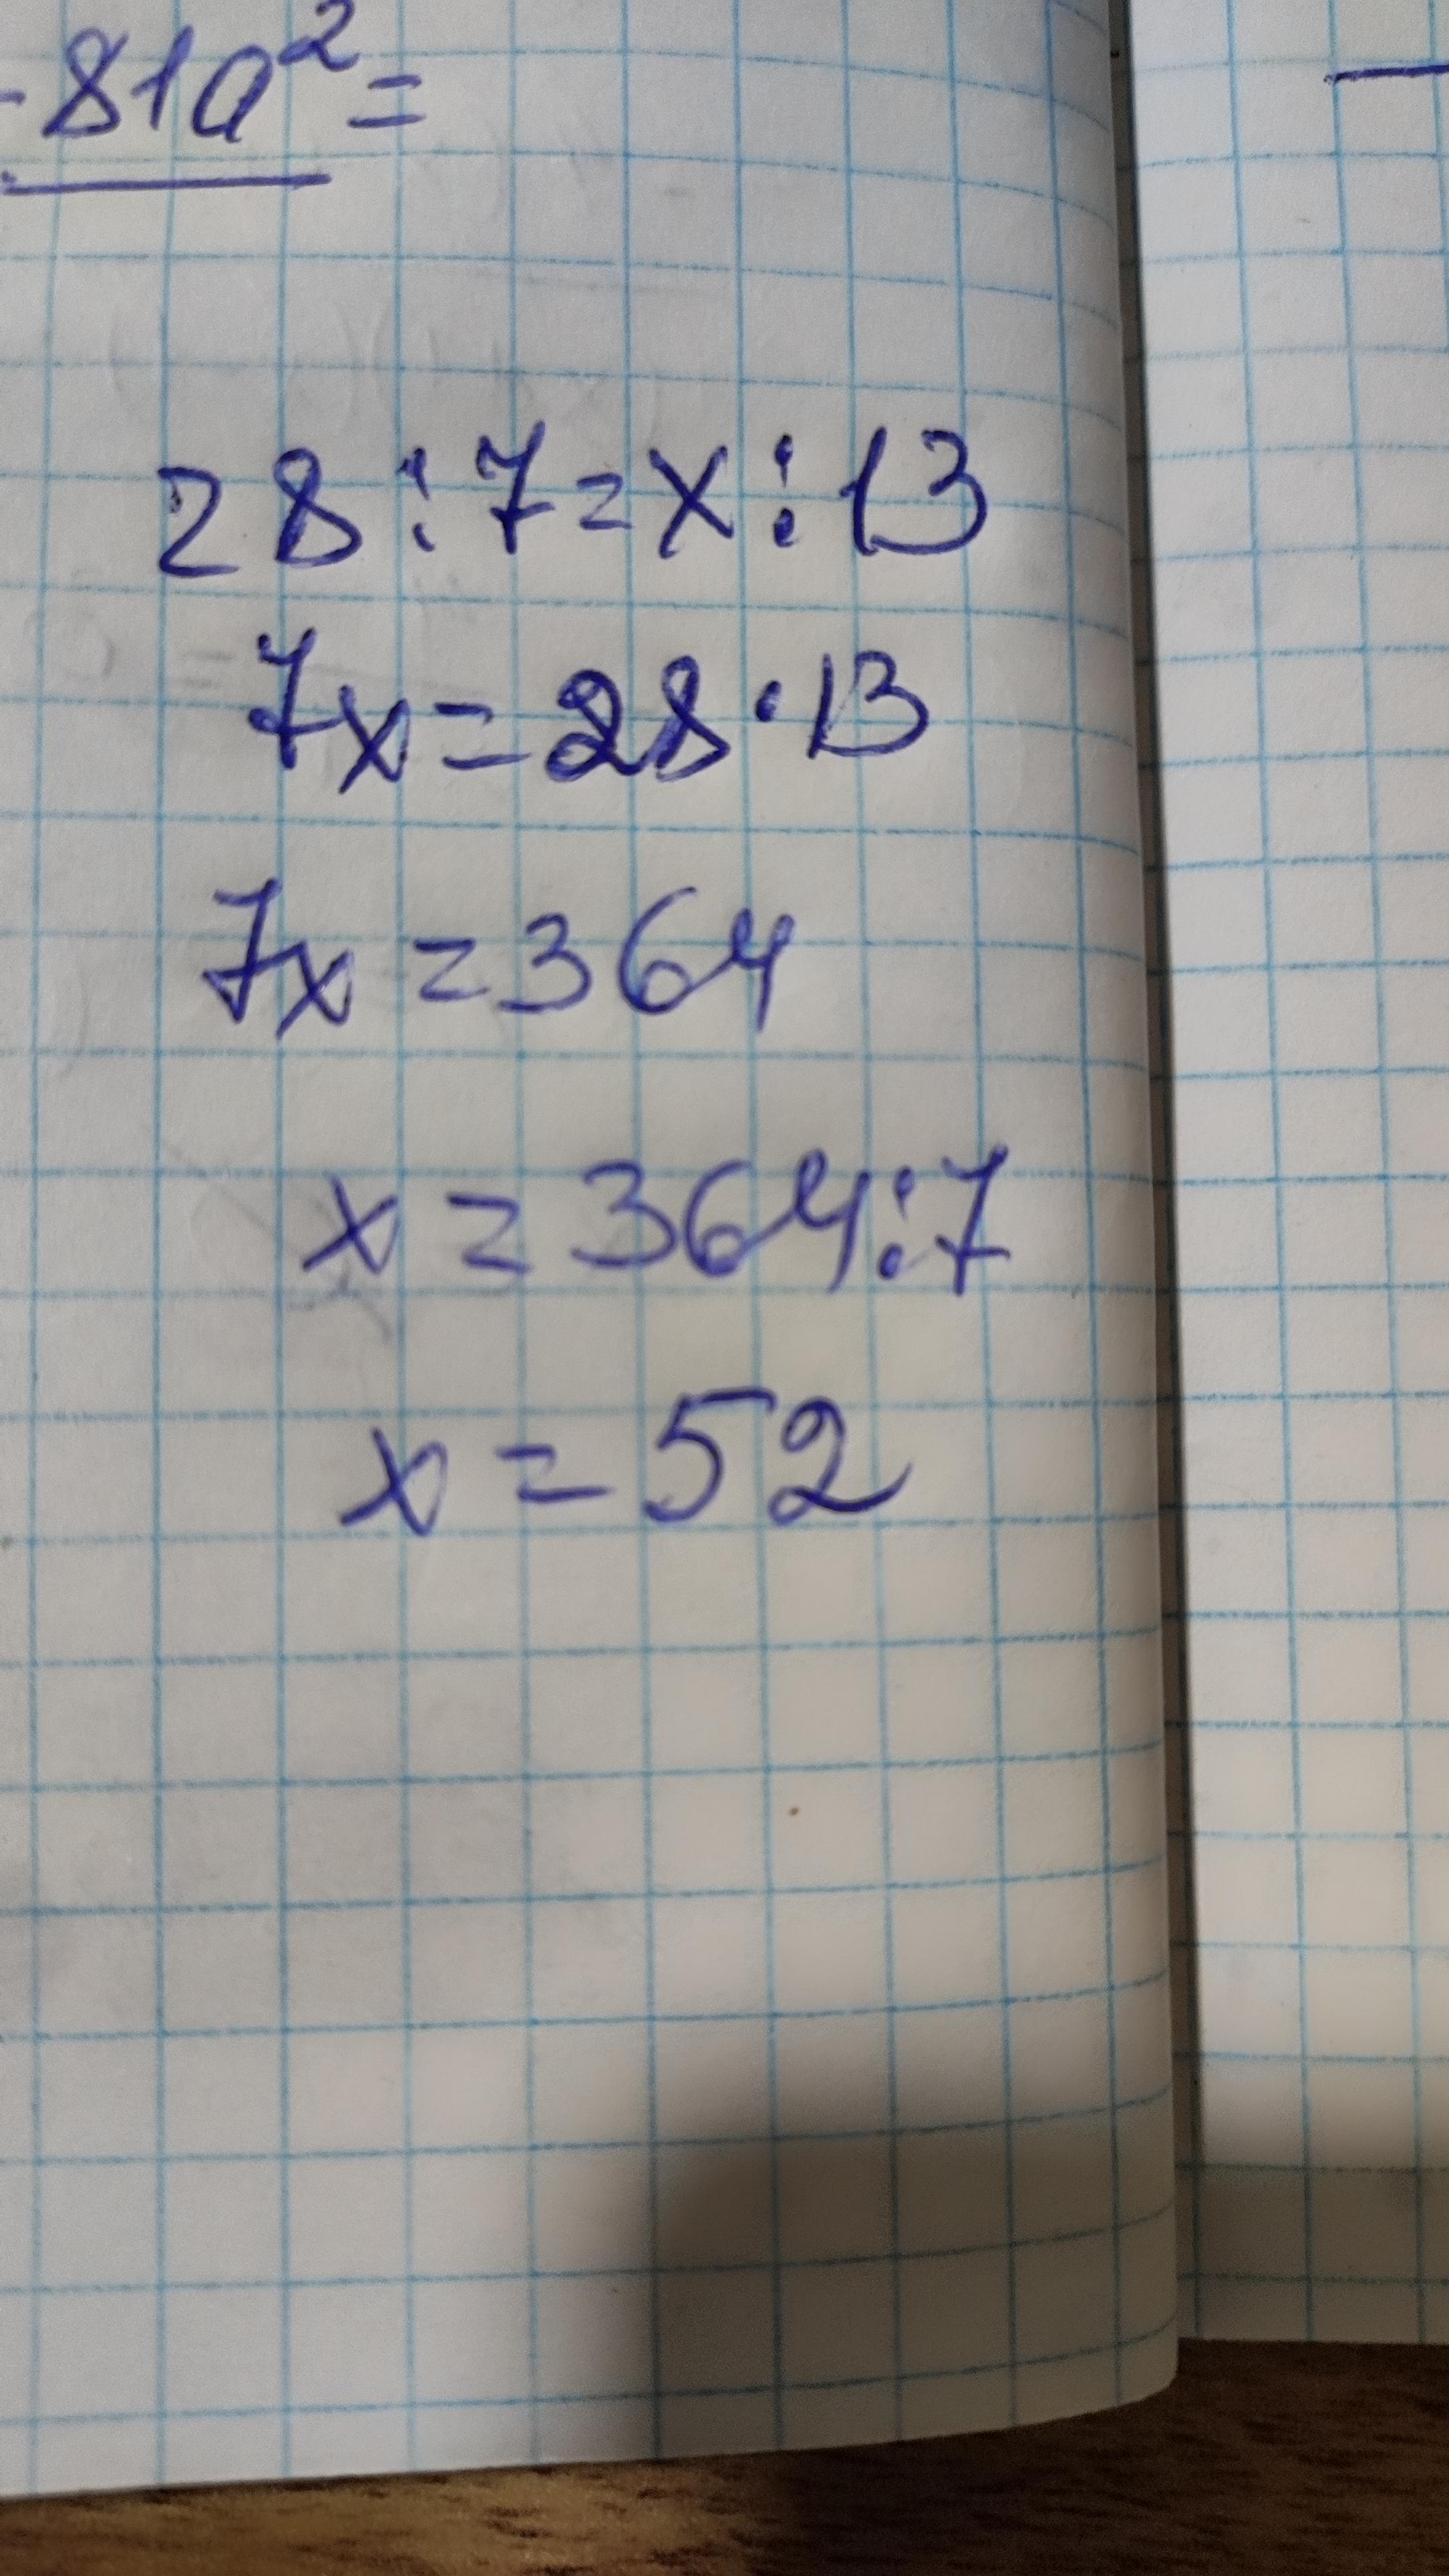 - 81a² =
28 : 7 = x : 13
7x = 28 · 13
7x = 364
x = 364 : 7
x = 52